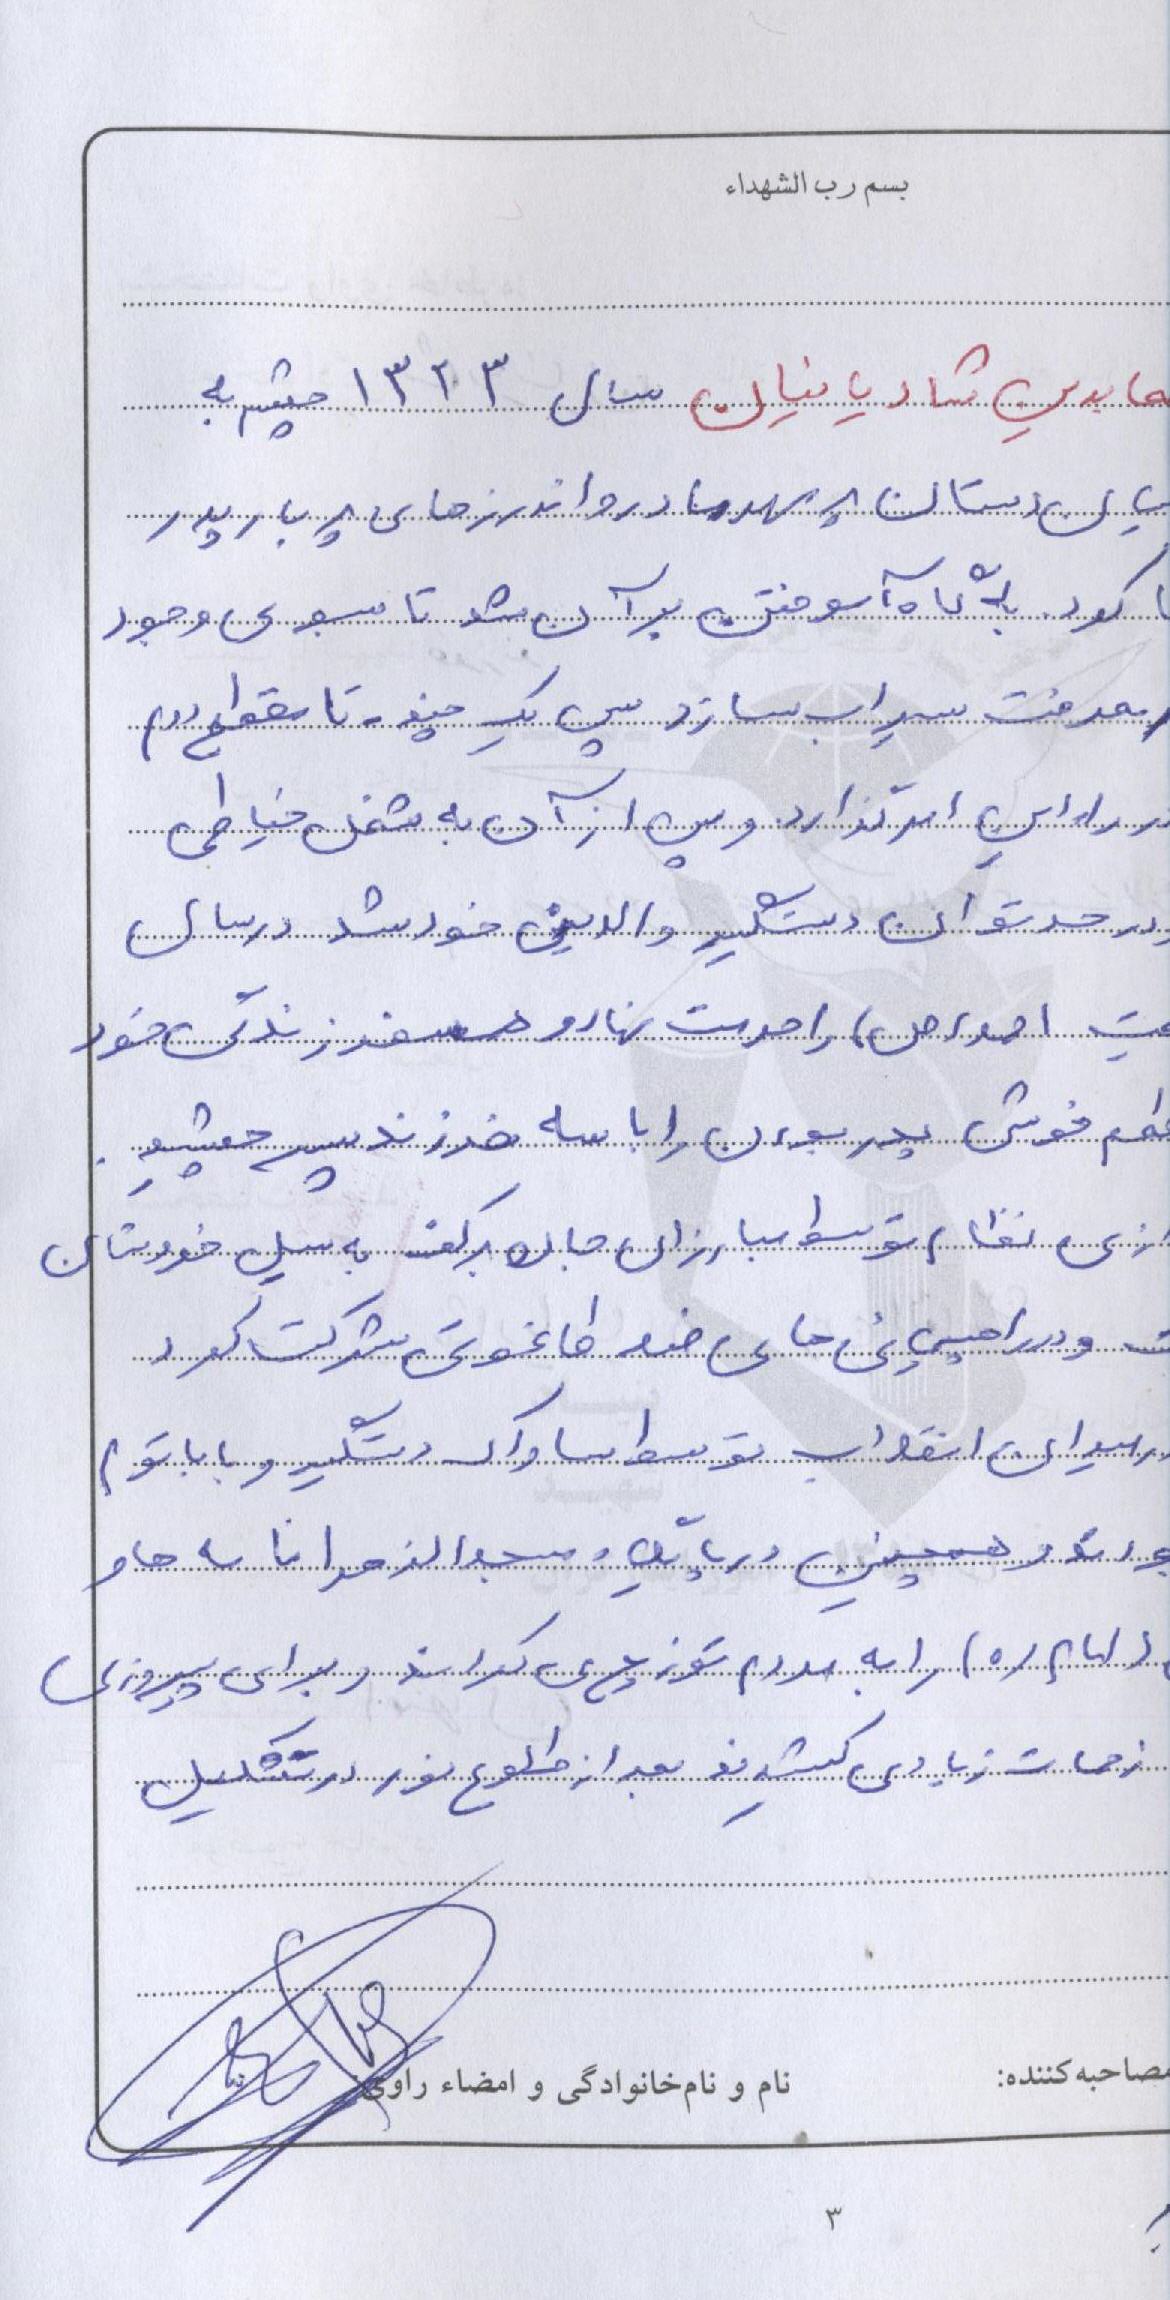 بسم رب الشهداء
عابدین شادیانیان سال ۱۳۲۳ چشم به
میان دستان پر مهر مادر و اندرزهای پر بار پدر
کرد. با گاه آموختن بر آن شد تا سبوی وجود
معرفت سیراب سازد پس یک چند تا مقطع دوم
در راه این امر گذارد. و پس از آن به شغل خیاطی
ودر حد توان دستگیر والدین خود شد در سال
احمد را حرمت نهاد و همسفر زندگی خود
طعم خوش پدر بودن را با سه فرزند پسر چشید.
نظام توسط مبارزان جان بر کف به سیل خروشان
ودر راهپیمایی های ضد طاغوتی شرکت کرد
در میدان انقلاب توسط ساواک دستگیر و با باتوم
و همچنین در پایگاه مسجد الزهرا نامه ها و
(امام ره) را به مردم توزیع می کردند و برای پیروزی
زحمات زیادی کشیدند بعد از طلوع نور در تشکیل
مصاحبه کننده:
نام و نام خانوادگی و امضاء راوی:
۳